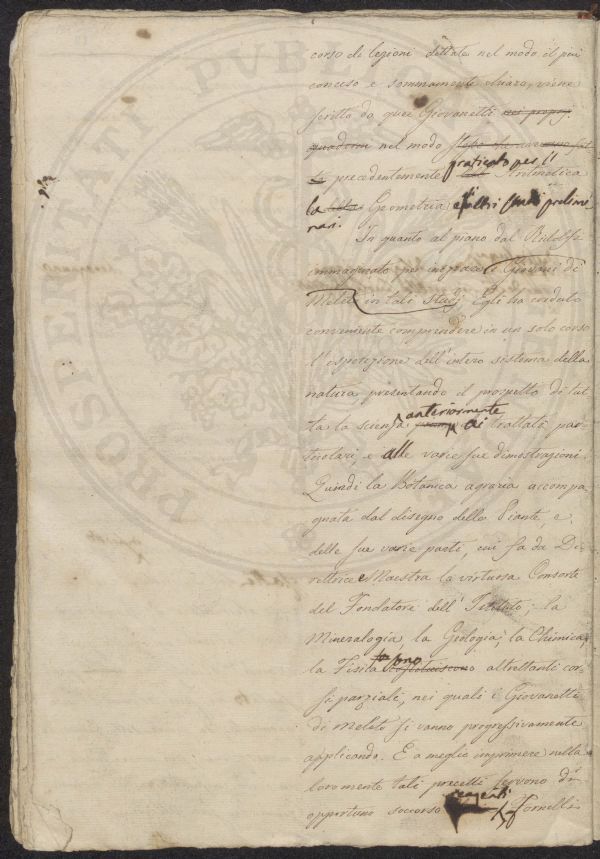 corso di lezioni dettate nel modo il più
conciso e sommamente chiaro, viene
scritto da quei Giovanetti nei proprj
quaderni nel modo stesso che
precedentemente praticato per l'Aritmetica
la Geometria e gli altri studi prelimi
nari.
In quanto al piano dal Ridolfi
immaginato per i Giovani di
Meleto in tali studj, Egli ha creduto
conveniente comprendere in un solo corso
l'esposizione dell'intero sistema della
natura presentando il prospetto di tut
ta la scienza anteriormente ai trattati par
ticolari, e alle varie sue dimostrazioni.
Quindi la Botanica agraria accompa
gnata dal disegno delle Piante, e
delle sue varie parti, cui fa da Di
rettrice e Maestra la virtuosa Consorte
del Fondatore dell'Istituto; la
Mineralogia, la Geologia, la Chimica,
la Fisica sono costituiscono altrettanti cor
si parziali, nei quali i Giovanetti
di Meleto si vanno progressivamente
applicando. E a meglio imprimere nella
loro mente tali precetti servono di
opportuno soccorso reagenti Fornelli
PROSPERITATI PVBLICAE